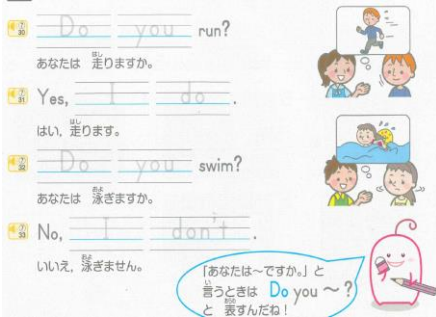 Do you run?
あなたは 走りますか。
Yes, I do.
はい，走ります。
Do you swim?
あなたは 泳ぎますか。
No, I don't.
いいえ，泳ぎません。
「あなたは～ですか。」と
言うときは Do you ～?
と 表すんだね！